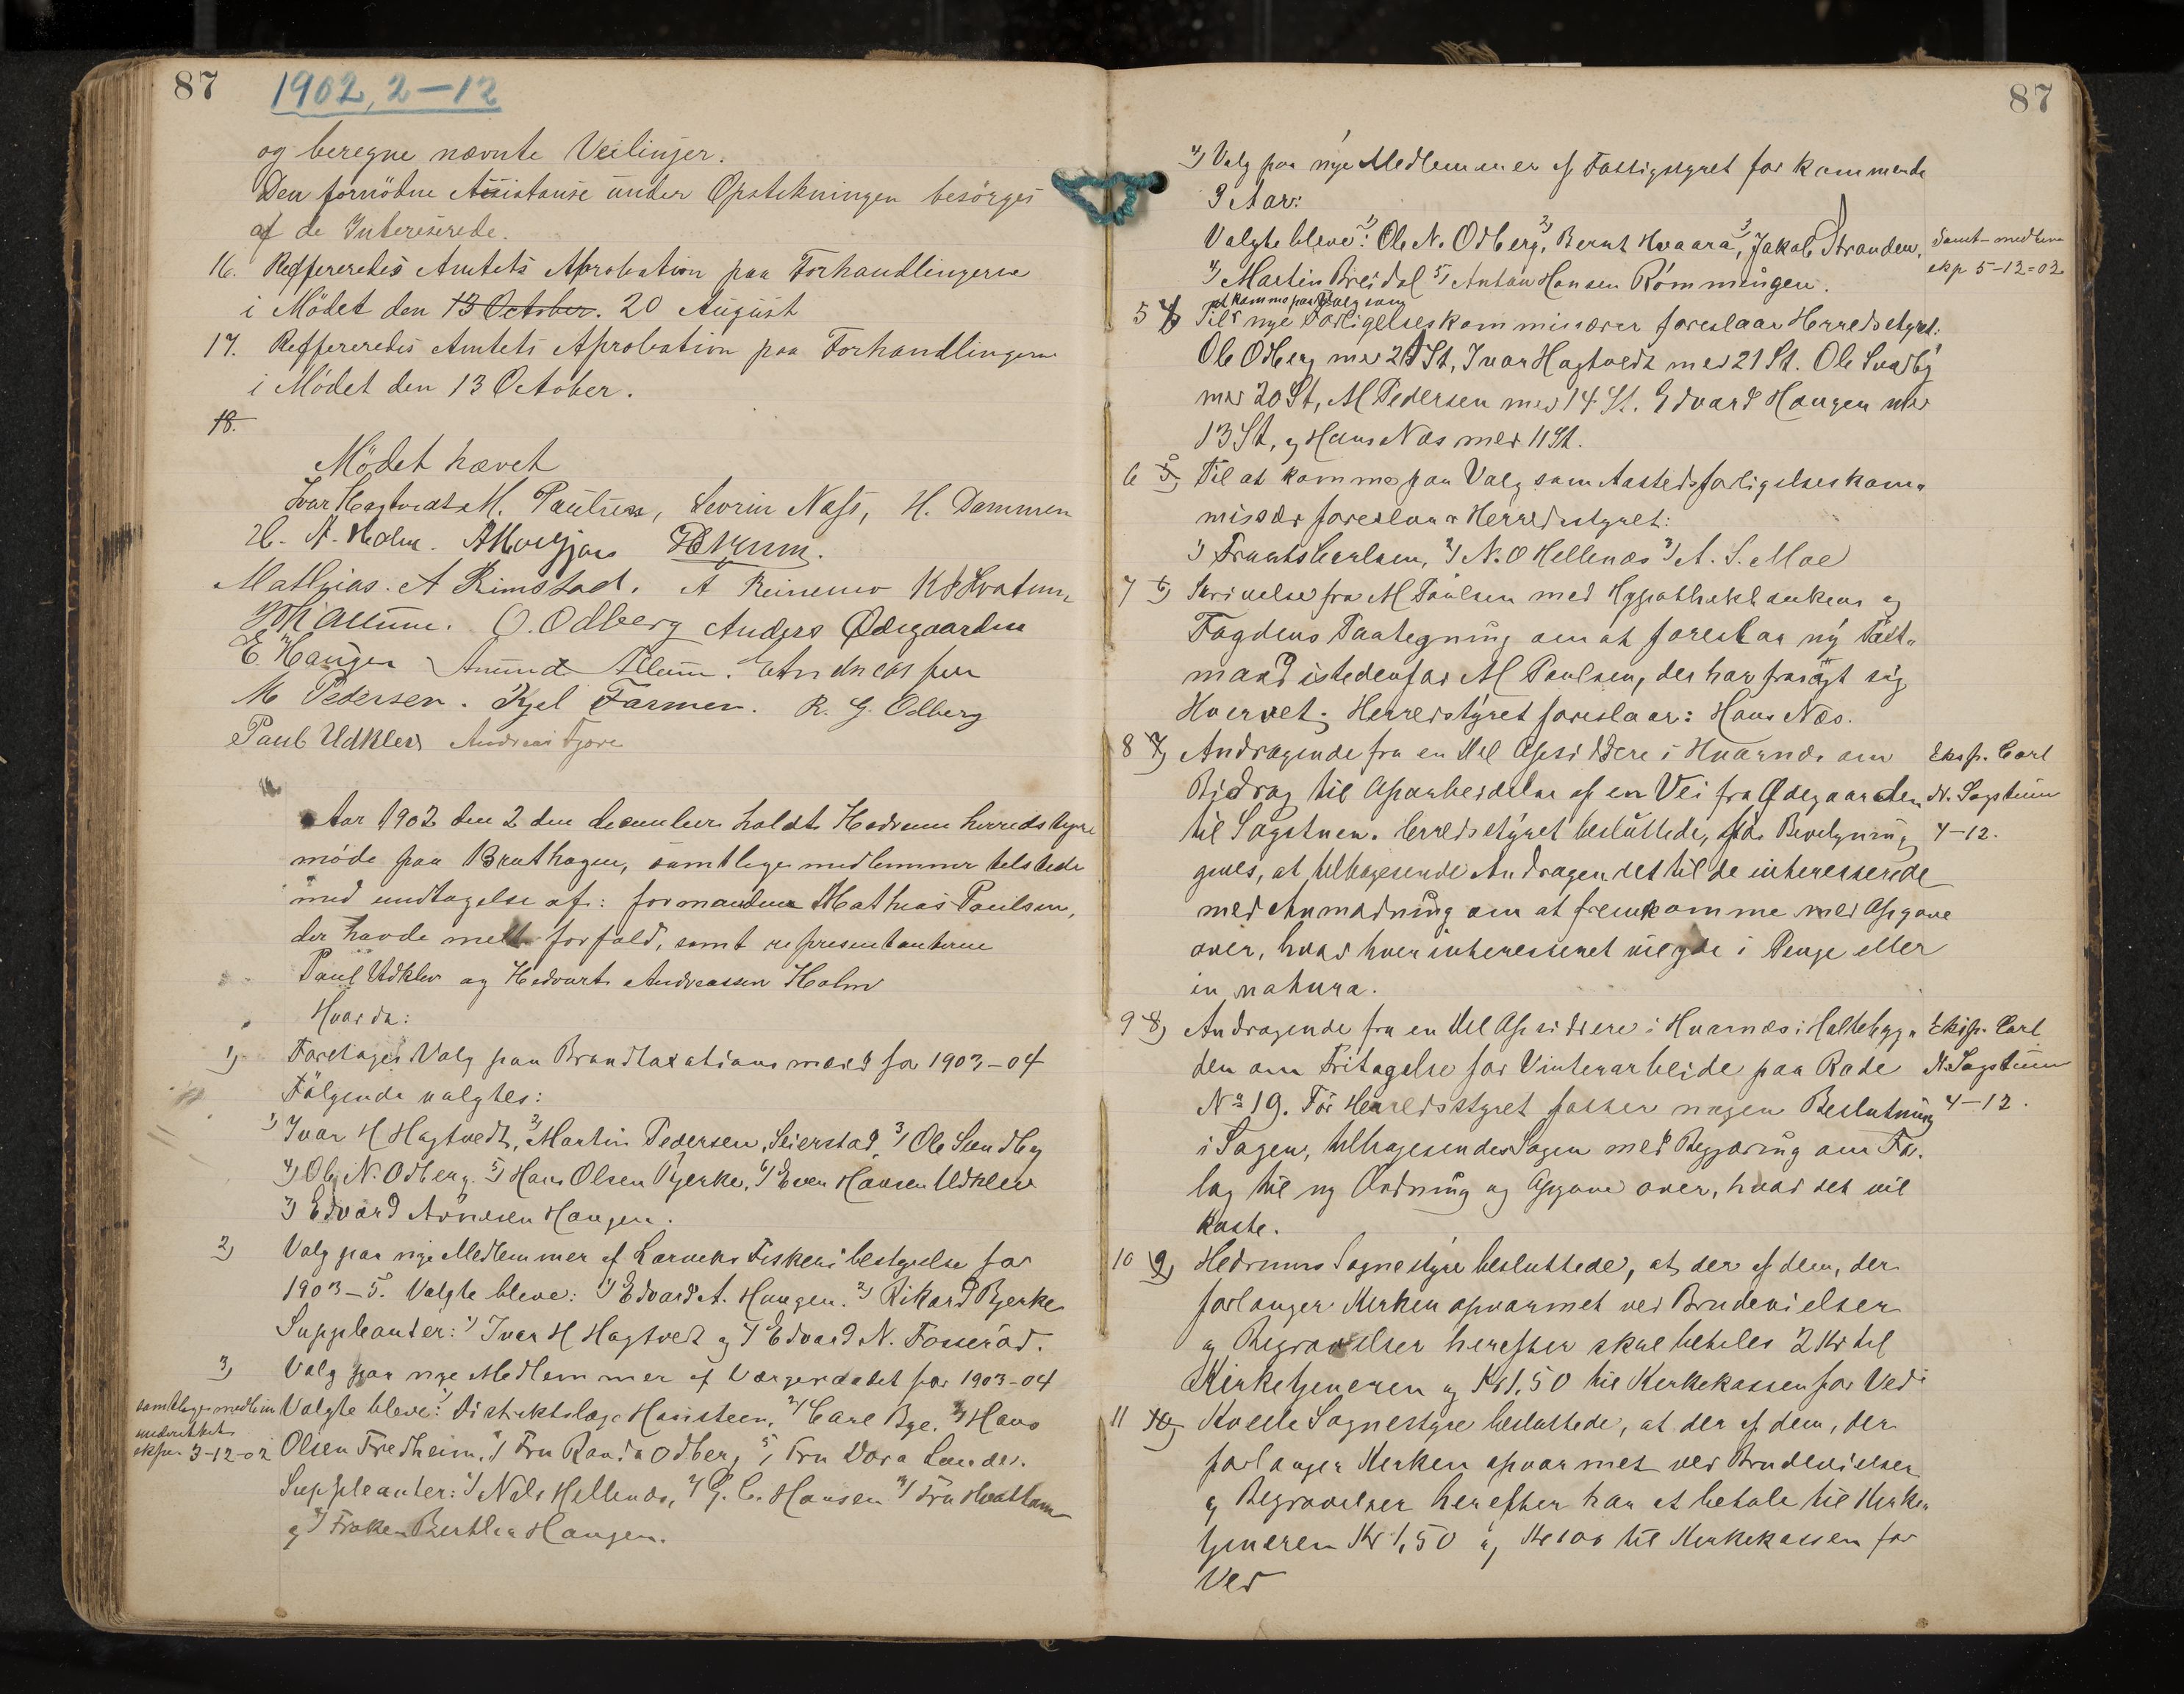 87
1902, 2-12
og beregne nævnte Veilinjer.
Den fornödne Assistanse under Opstikningen besörges
af de Intereserede.
16. Reffereredes Amtets Aprobation paa Forhandlingerne
i Mödet den 13 October. 20 August
17. Reffereredes Amtets Aprobation paa Forhandlingerne
i Mödet den 13 October.
18.
Mödet hævet
Ivar Hagtvedt M. Paulsen, Sevrin Næss, H. Dammen
H. A. Holm.
Mathias. A Rimstad. A
Allum. O. Odberg Anders Ödegaarden
E. Haugen Amund Allum.
M Pedersen. Kjel Farmen. R. G. Odberg
Paul Udklev Andreas Gjøre
Aar 1902 den 2 den december holdt Hedrum herredstyre
möde paa Brathagen, samtlige medlemmer tilstede
med undtagelse af: formanden Mathias Paulsen,
der havde meldt forfald, samt representanterne
Paul Udklev og Hedvart Andreassen Holm
Hvor da:
1) Foretages Valg paa Brandtaxationsmænd for 1903-04
Fölgende valgtes:
1) Ivar H Hagtvedt, 2) Martin Pedersen Seierstad, 3) Ole Sundby
4) Ole N. Odberg. 5) Hans Olsen Bjerke, 6) Even Hansen Udklev
7) Edvard Arnesen Haugen.
2) Valg paa nye Medlemmer af Larviks Fiskeribestyrelse for
1903-5. Valgte bleve: 1) Edvard A. Haugen. 2) Rikard Bjerke
Suppleanter: 1) Ivar H Hagtvedt og 2) Edvard N. Fosseröd.
3) Valg paa nye Medlemmer af Værgeraadet for 1903-04
samtlige medlem
underrettet
eksp. 3-12-02
Valgte bleve: 1) Distriktslæge Hansteen, 2) Carl Bye. 3) Hans
Olsen Fredheim. 4) Fru Randa Odberg, 5) Fru Dora Lunde.
Suppleanter: 1) Nils Hellenæs, 2) G. C. Hansen 3) Fru Hvattum
og 4) Fröken Bertha Haugen.
87
4) Valg paa nye Medlemmer af Fattigstyret for kommende
3 Aar:
Valgte bleve: 1) Ole N. Odberg, 2) Bernt Hvaara, 3) Jakob Stranden,
4) Martin Breidal 5) Anton Hansen Römmingen.
Samt. medlem
ekp 5-12-02
at komme paa Valg som
5 4) Til nye Forligelseskommissærer foreslaar Herredstyret:
Ole Odberg med 21 St, Ivar Hagtvedt med 21 St. Ole Sundby
med 20 St, M Pedersen med 14 St. Edvard Haugen med
13 St, og Hans Næs med 11 St.
6 5) Til at komme paa Valg som Aastedsforligelseskom-
missær foreslaar Herredsstyret:
1) Frants Carlsen, 2) N. O Hellenæs 3) A. S. Moe
7 6) Skrivelse fra M Paulsen med Hypothekbankens og
Fogdens Paategning om at foreslaa ny Takst-
mand istedenfor M Paulsen, der har frasagt sig
Hvervet. Herredstyret foreslaar: Hans Næs.
8 7) Andragende fra en Del Opsiddere i Hvarnæs om
Bidrag til Oparbeidelse af en Vei fra Ødegaarden
til Sagstuen. Herredsstyret besluttede, før Bevilgning
gives, at tilbagesende Andragendet til de interesserede
med Anmodning om at fremkomme med Opgave
over, hvad hver interesseret vil yde i Penge eller
in natura.
Eksp. Carl
N. Sagstuen
4-12.
9 8) Andragende fra en Del Opsiddere i Hvarnæs i Haltebyg-
den om Fritagelse for Vinterarbeide paa Rode
No 19. Før Herredsstyret fatter nogen Beslutning
i Sagen, tilbagesendes Sagen med Begjæring om For-
lag til ny Ordning og Opgave over, hvad det vil
koste.
Eksp. Carl
N. Sagstuen
4-12.
10 9) Hedrums Sognestyre besluttede, at der af dem, der
forlanger Kirken opvarmet ved Brudevielser
og Begravelser herefter skal betales 2 Kr til
Kirketjeneren og Kr 1,50 til Kirkekassen for Ved.
11 10) Kvelde Sognestyre besluttede, at der af dem, der
forlanger Kirken opvarmet ved Brudevielser
og Begravelser herefter har at betale til Kirke-
tjeneren Kr 1,50 og Kr 1,00 til Kirkekassen for
Ved